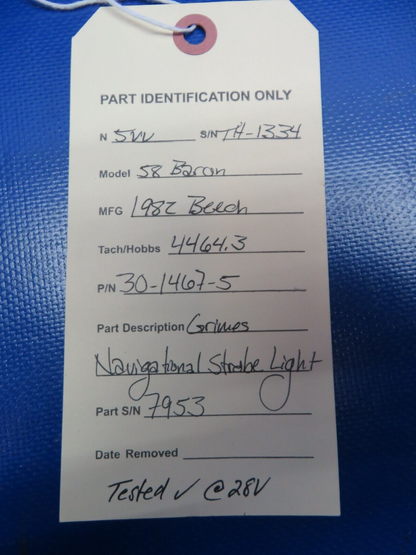 PART IDENTIFICATION ONLY
N 5VV S/N TH-1334
Model 58 Baron
MFG 1982 Beech
Tach/Hobbs 4464.3
P/N 30-1467-5
Part Description Grimes
Navigational Strobe Light
Part S/N 7953
Date Removed
Tested ✓ @ 28V